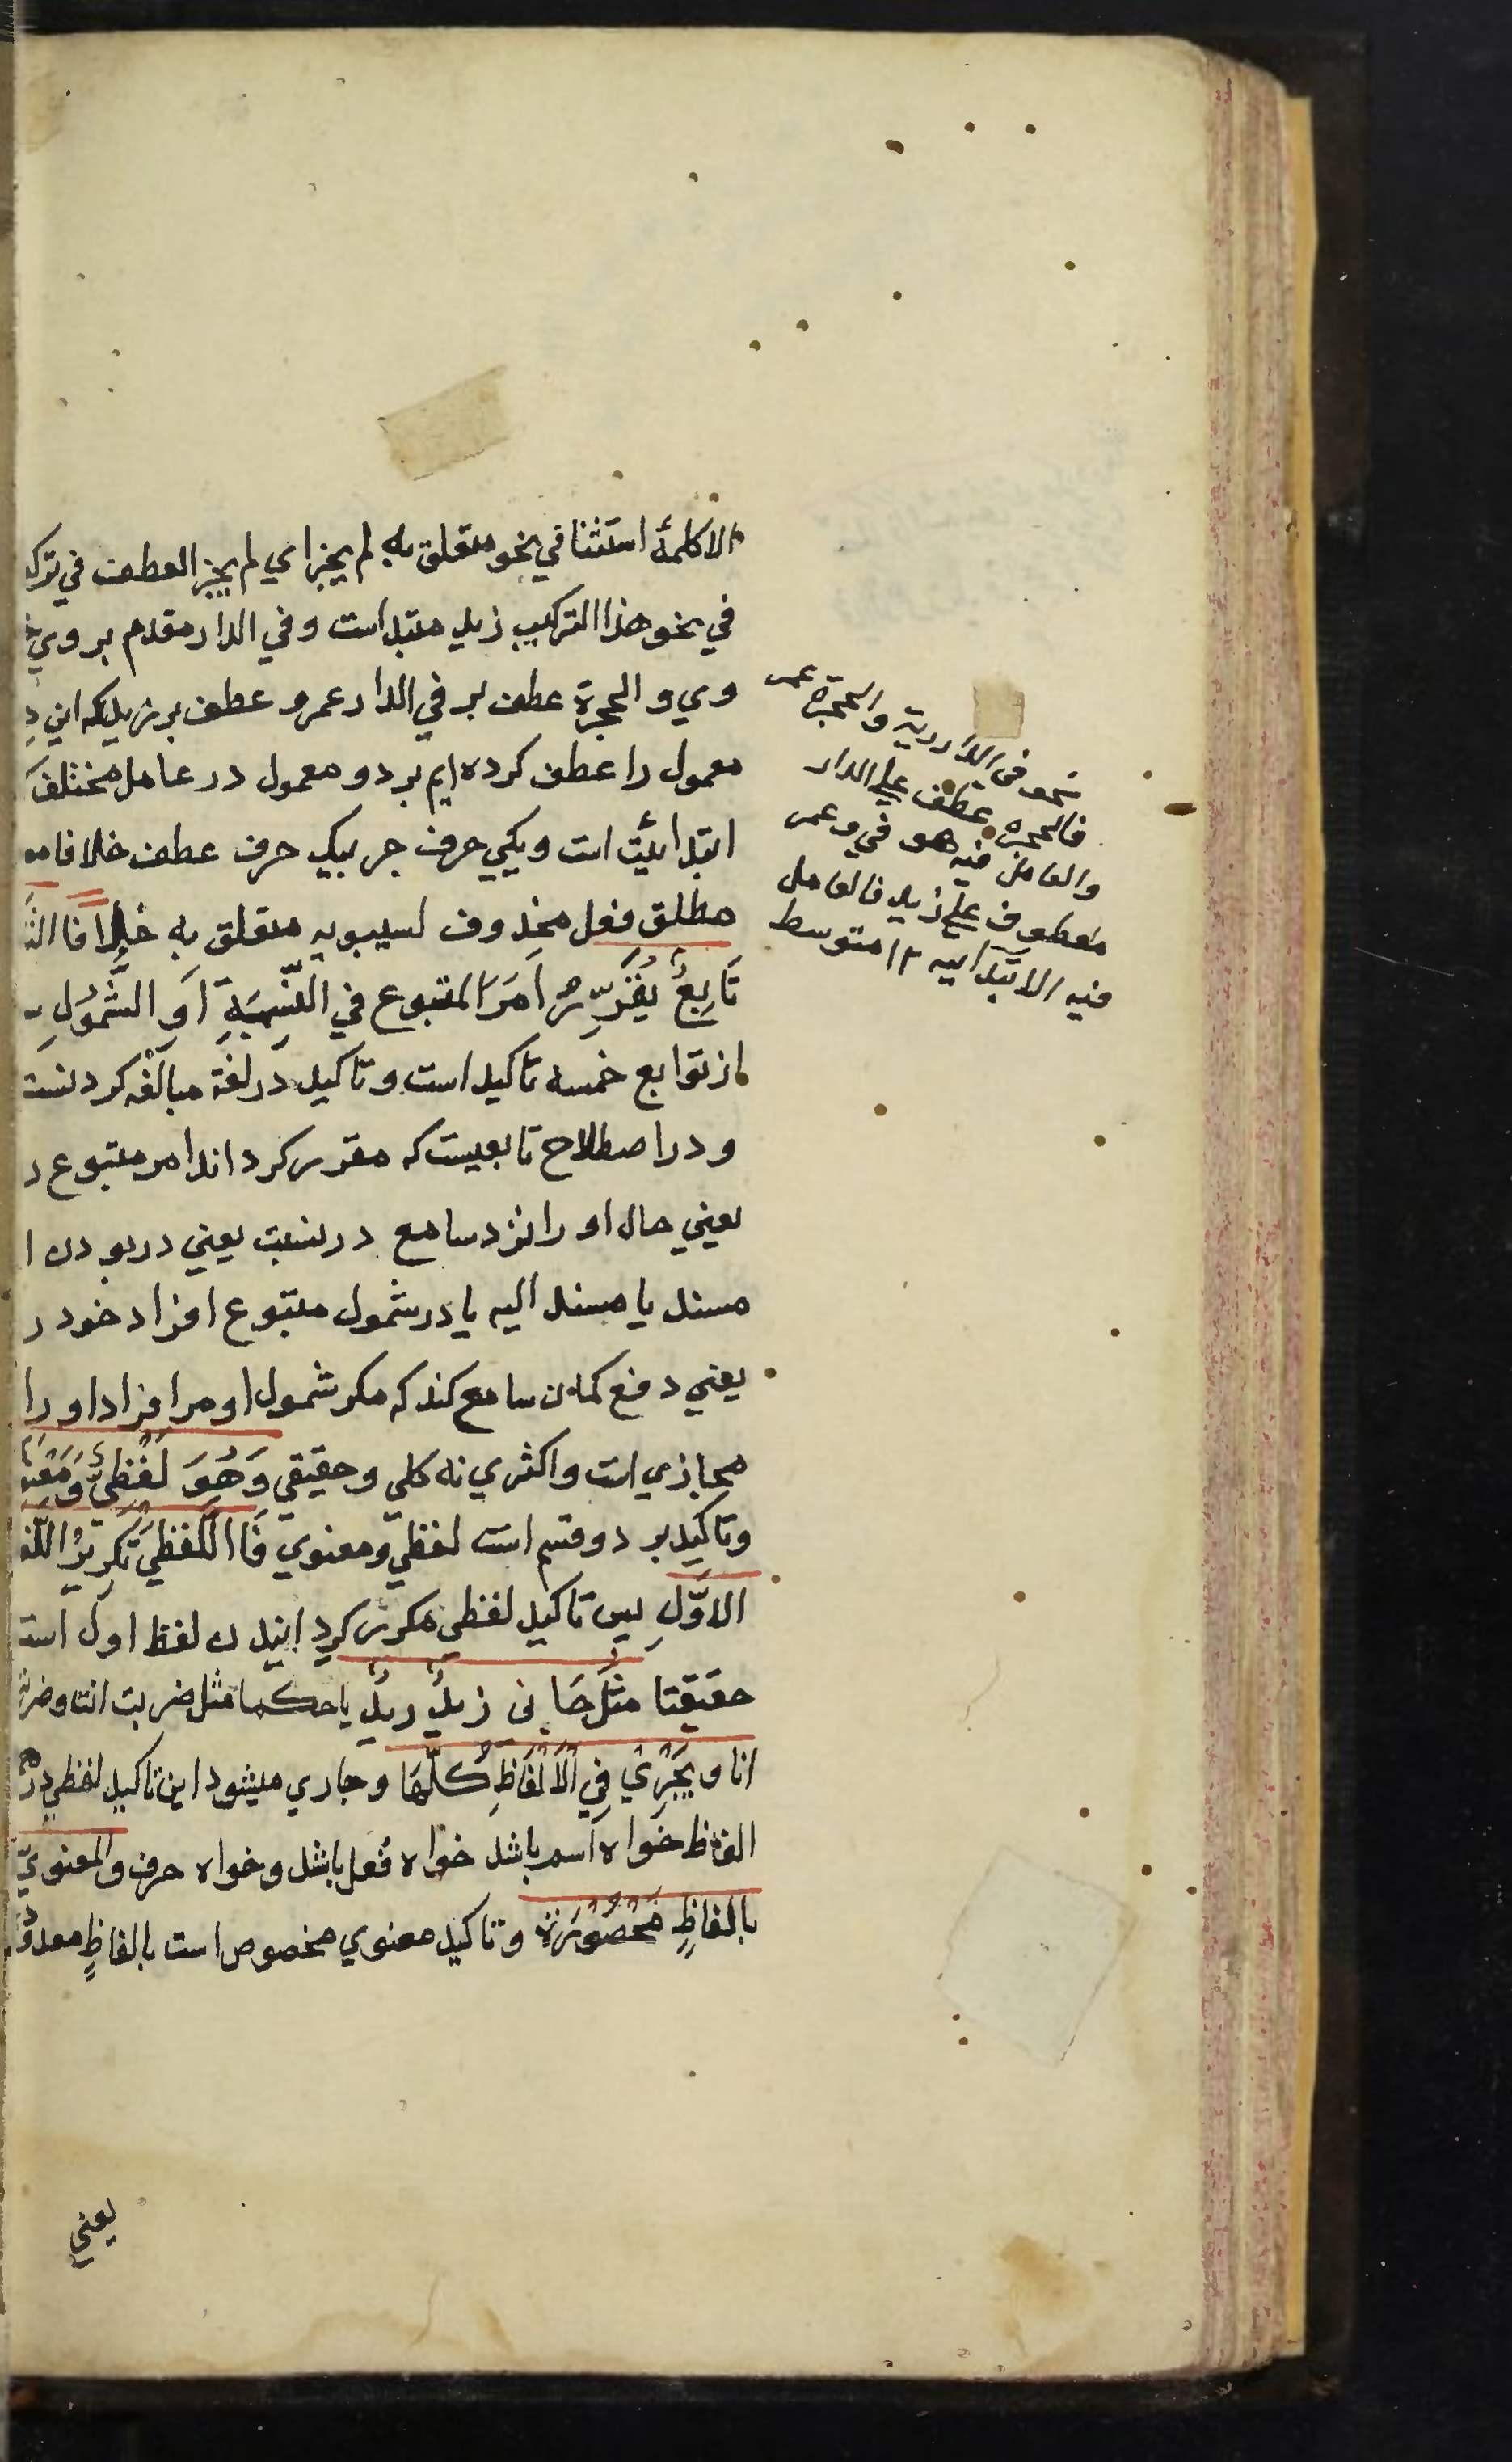 الا كلمهٔ استثنا في نحو متعلق به لم يجز اي لم يجز العطف في ترك
في نحو هذا التركيب زيد مبتدا ست و في الدار مقدم بر وي
وي و الحجرة عطف بر في الدار عمرو عطف بر زيد كه اين د
معمول را عطف كرده ايم بر دو معمول در عامل مختلف
ابتدائيت است و يكي حرف جر بيك حرف عطف خلافا
مطلق فعل محذوف لسيبويه متعلق به خلافا
تَابِعٌ يُقَرِّرُ اَمَرَ المتبوع في النِّسبَةِ اَوِ الشُّمُولِ
از توابع خمسه تاكيد است و تاكيد در لغة مبالغه كردنست
و در اصطلاح تابعيست كه مقرر كرداند امر متبوع د
يعني حال او را نزد سامع در نسبت يعني در بودن ا
مسند يا مسند اليه يا در شمول متبوع افراد خود ر
يعني دفع كمان سامع كند كه مكر شمول او مر افراد او را
مجازي است و اكثري نه كلي و حقيقي وَهُوَ لَفْظِيٌّ وَمَعْنَ
و تاكيد بر دو قسم است لفظي و معنوي فَاللَّفْظِيُّ تَكْرِيْرُ اللَّفْ
الاوَّلِ پس تاكيد لفظي مكرر كردانيدن لفظ اول است
حقيقتا مِثْلُ جَا نى زيدٌ زيدٌ يا حكما مثل ضربت انت و ضربت
انا و يَجْرِيْ فِي الْاَلْفَاظِ كُلِّهَا و جاري ميشود اين تاكيد لفظي در
الفاظ خواه اسم باشد خواه فعل باشد و خواه حرف والمعنويّ
بالفاظٍ مَحْصُوْرَةٍ و تاكيد معنوي مخصوص است بالفاظٍ معدو
نحو فى الدار زيد و الحجرة عمر
فالحجرة عطف على الدار
والعامل فيه هو في و عمر
معطوف على زيد فالعامل
فيه الابتدائيه ١٢ متوسط
يعني